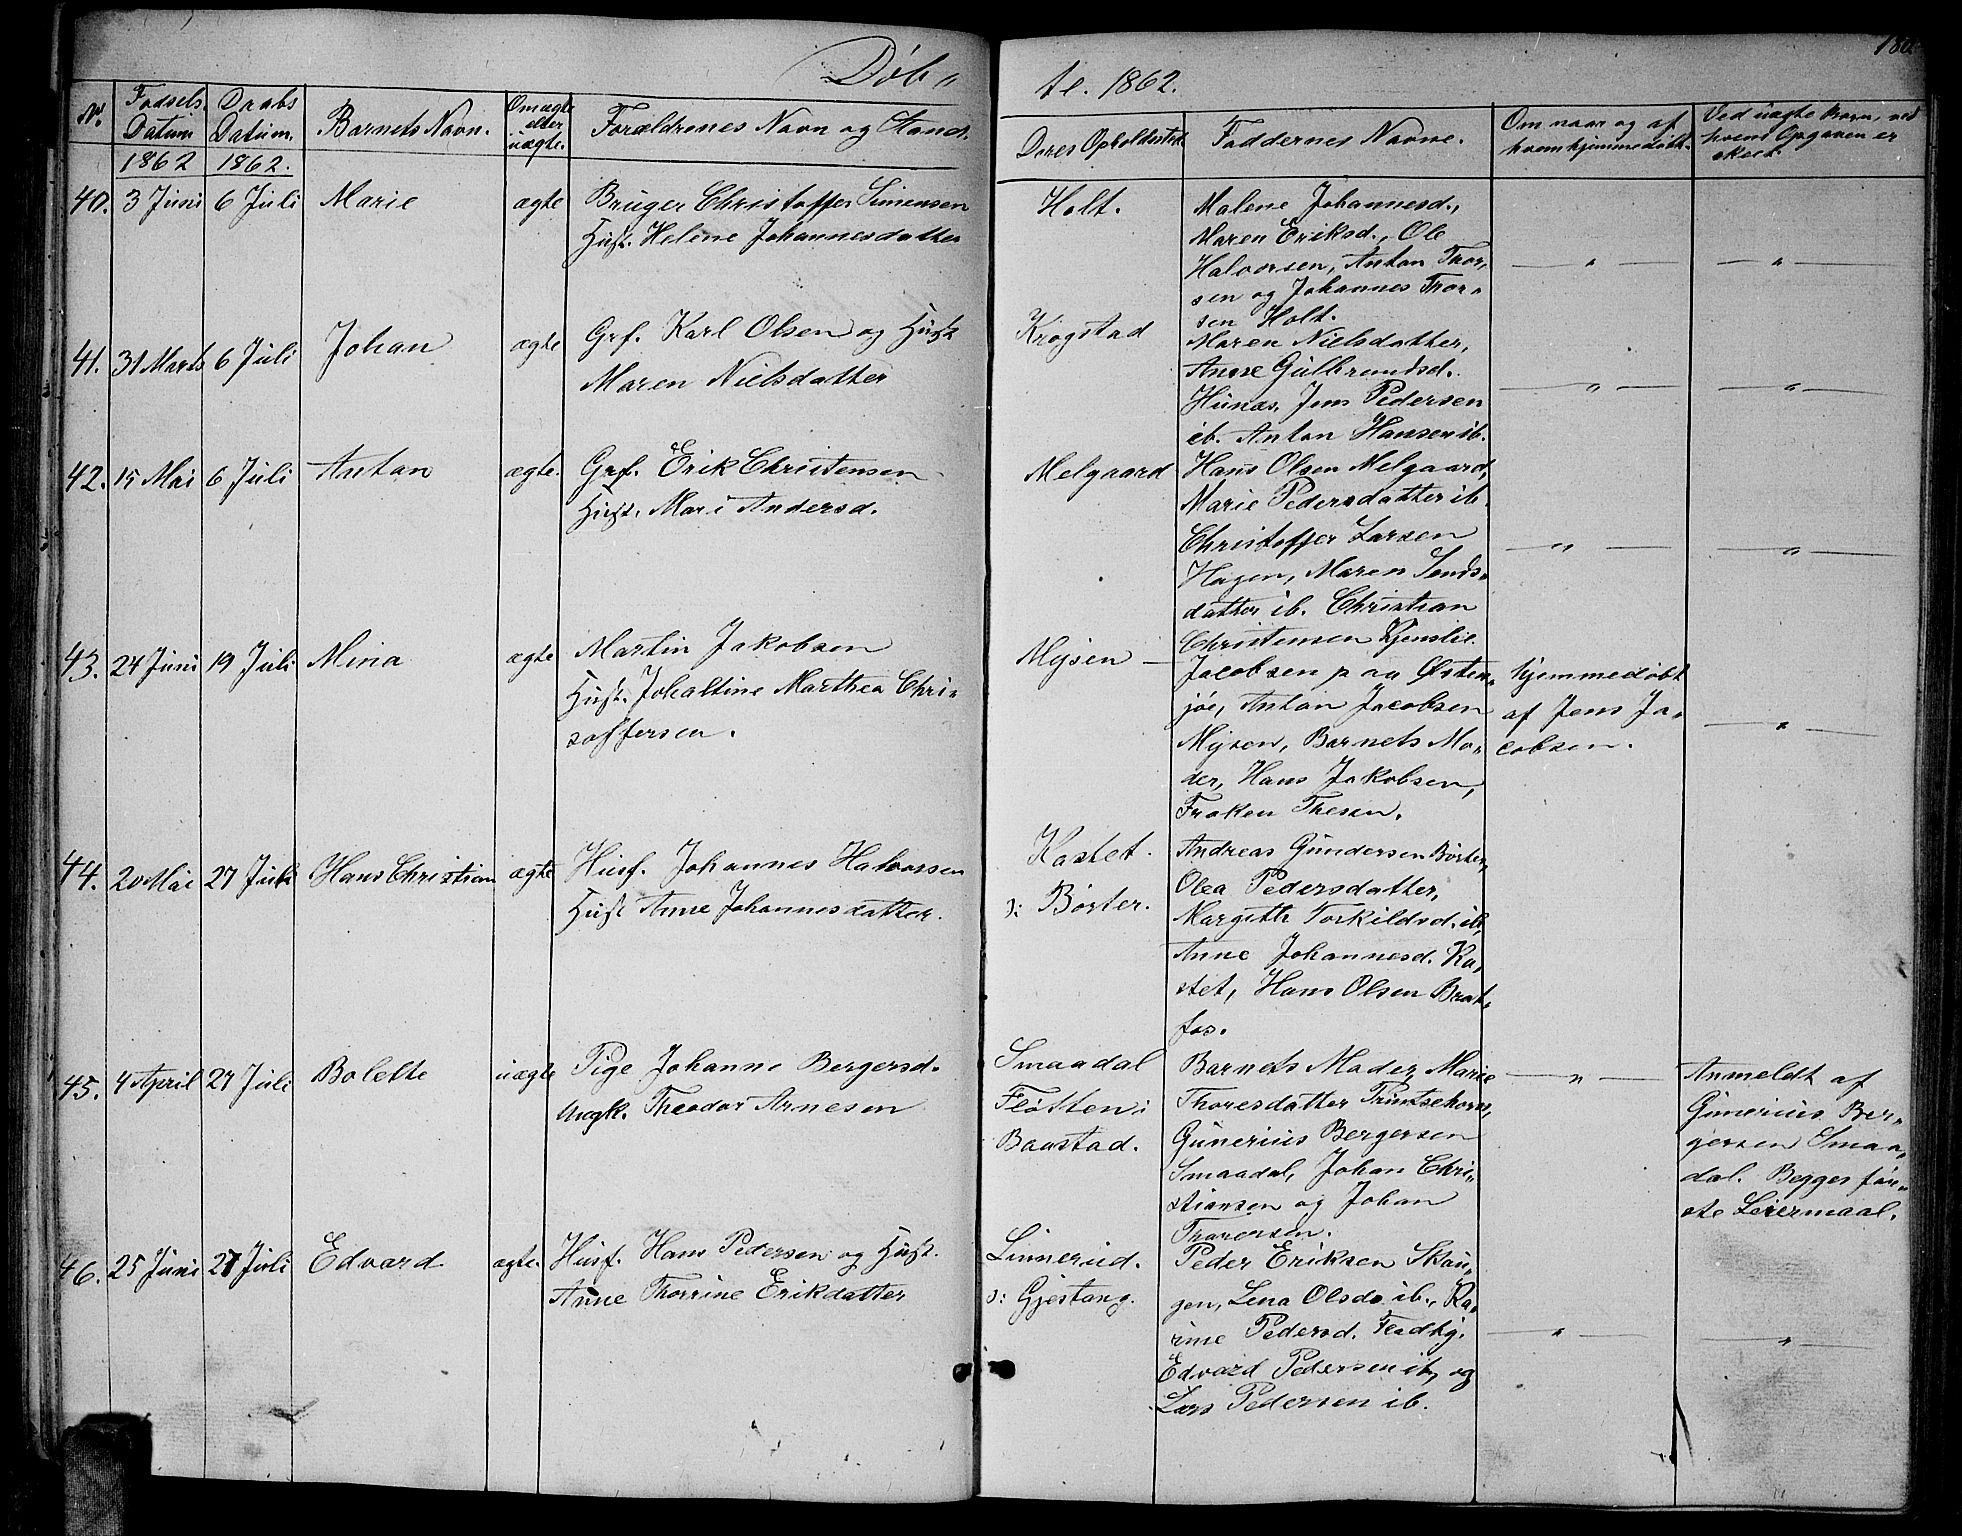 Døb„
te. 1862.
180
N. Fødsels Datum Daabs Datum. Barnets Navn. Om ægte eller uægte. Forældrenes Navn og Stand.
Deres Opholdssted Faddernes Navne. Om naar og af hvem hjemmedøbt. Ved uægte Børn, ved hvem Opgaven er skeet.
1862 1862.
40. 3 Juni 6 Juli Marie ægte Bruger Christoffer Simensen
Hust. Helene Johannesdatter
Holt. Malene Johannesd.,
Maren Eriksd., Ole
Halvorsen, Anton Thor„ — „ — — „ —
sen og Johannes Thor„
sen Holt.
41. 31 Marts 6 Juli Johan ægte Grf. Karl Olsen og Hust
Maren Nielsdatter
Krogstad Maren Nielsdatter,
Anne Gulbrandsd.
Hunæs, Jens Pedersen — „ — — „ —
ib. Anton Hansen ib.
42. 15 Mai 6 Juli Anton ægte. Grf. Erik Christensen
Hust. Mari Andersd.
Melgaard Hans Olsen Melgaard,
Marie Pedersdatter ib.
Christoffer Larsen — „ — — „ —
Hagen, Maren
datter ib. Christian
Christensen
43. 24 Juni 19 Juli Mina ægte Martin Jakobsen
Hust. Johaltine Marthea Chri„
soffersen.
Mysen — Jacobsen paa Østen„ hjemmedøbt
jøe, Anton Jacobsen af Jens Ja„
Mysen, Barnets Mo„ cobsen. — „ —
der, Hans Jakobsen,
Frøken Thesen.
44. 20 Mai 27 Juli Hans Christian ægte Husf. Johannes Halvorsen
Hust Anne Johannesdatter.
Kastet. Andreas Gundersen Børter,
ɔ: Børter. Olea Pedersdatter,
Margith Torkildsd. ib,
Anne Johannesd. Ka„
stet, Hans Olsen Brat„
fos.
45. 4 April 27 Juli Bolette uægte Pige Johanne Bergersd.
Ungk. Theodor Arnesen
Smaadal Barnets Moder, Marie — „ — Anmeldt af
Fløtten i Thoresdatter Gunerius Ber„
Baastad. Gunerius Bergersen gersen Smaa„
Smaadal, Johan Chri„ dal. Begges før„
stiansen og Johan ste Leiermaal.
Thorersen.
46. 25 Juni 27 Juli Edvard ægte. Husf. Hans Pedersen og Hust.
Anne Thorine Erikdatter
Linnerud. Peder Eriksen Skau„
ɔ: Gjestang. gen, Lena Olsd. ib., Ka„
rine Pedersd. — „ — — „ —
Edvard Pedersen ib, og
Lars Pedersen ib.